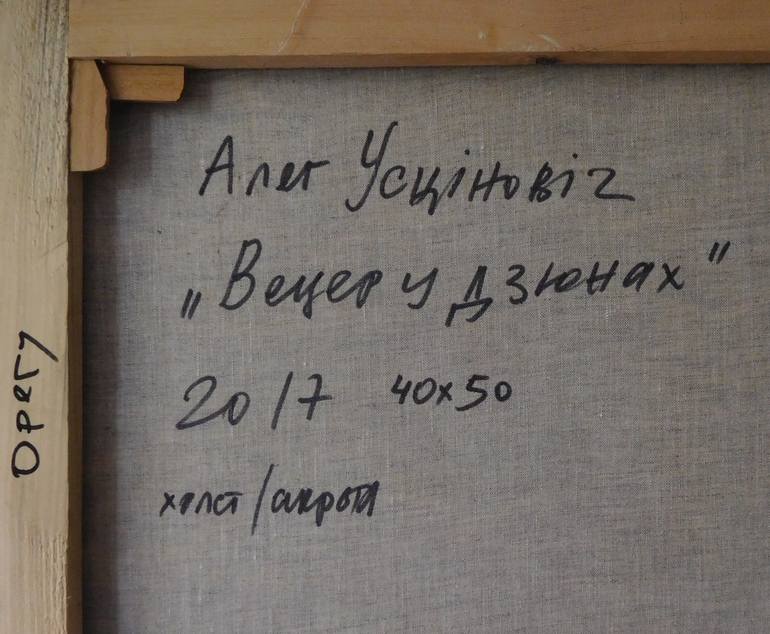 Алег Усціновіч
„Вецер у дзюнах"
2017 40х50
холст/акрыл
Орегу